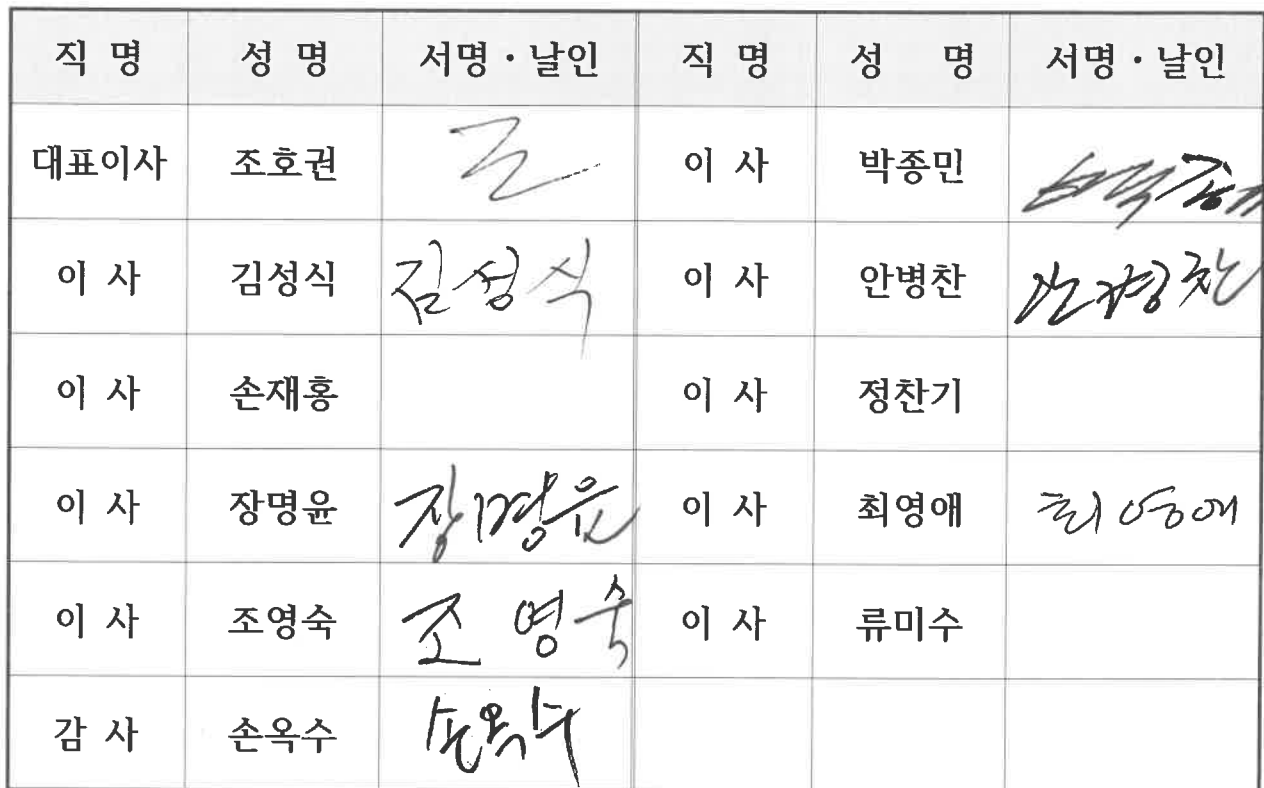 직 명 성 명 서명·날인 직 명 성 명 서명·날인
대표이사 조호권 이 사 박종민
이 사 김성식 김성식 이 사 안병찬 안병찬
이 사 손재홍 이 사 정찬기
이 사 장명윤 장명윤 이 사 최영애 최영애
이 사 조영숙 조 영숙 이 사 류미수
감 사 손옥수 손옥수